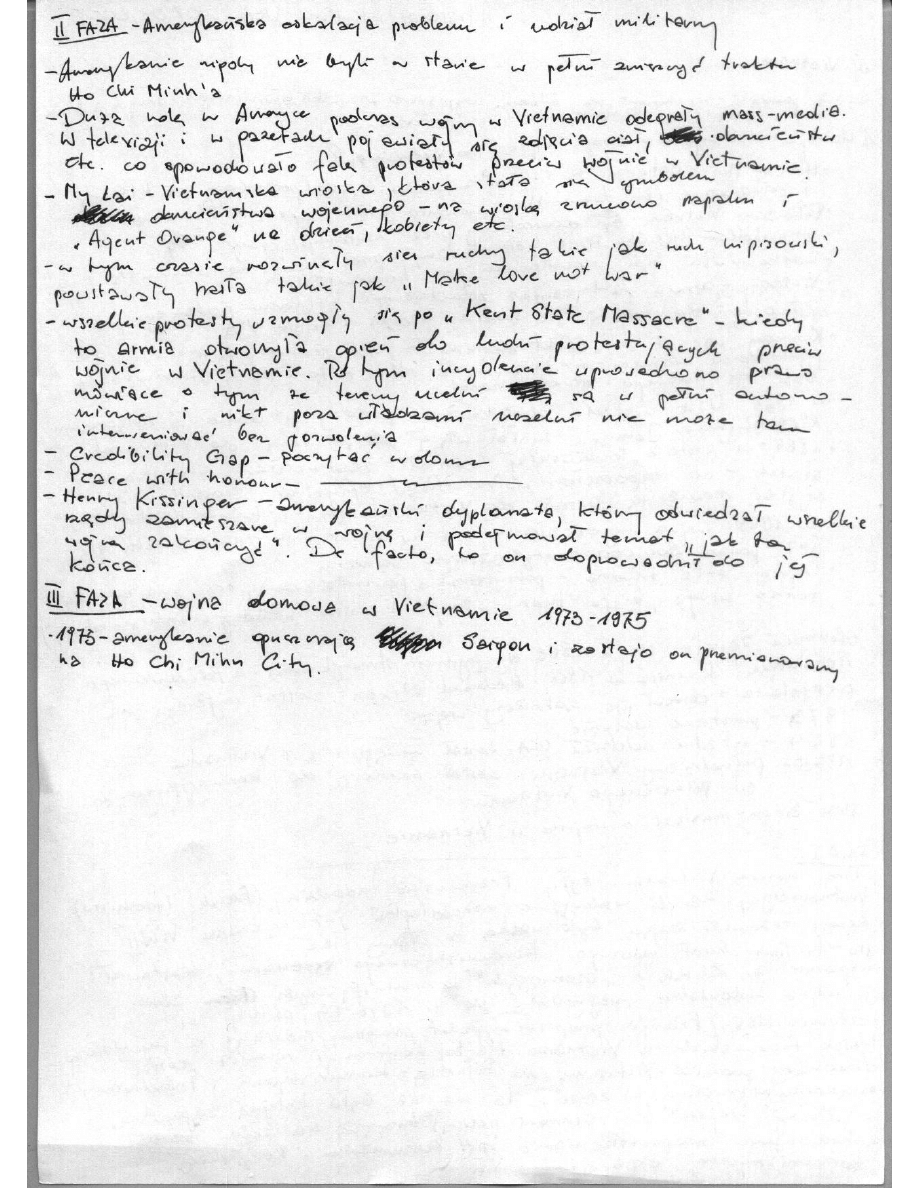 II FAZA - Amerykańska eskalacja problemu i udział militarny
- Amerykanie nigdy nie byli w stanie w pełni zniszczyć traktu
Ho Chi Minh'a
- Dużą rolę w Ameryce podczas wojny w Vietnamie odegrały mass-media.
W telewizji i w gazetach pojawiały się zdjęcia ciał, okrucieństw
etc. co spowodowało falę protestów przeciw wojnie w Vietnamie.
- My Lai - Vietnamska wioska, która stała się symbolem
okrucieństwa wojennego - na wioskę zrzucono napalm i
"Agent Orange" na dzieci, kobiety etc.
- w tym czasie rozwinęły się ruchy takie jak ruch hipisowski,
powstawały hasła takie jak "Make love not war"
- wszelkie protesty wzmogły się po "Kent State Massacre" - kiedy
to armia otworzyła ogień do ludzi protestujących przeciw
wojnie w Vietnamie. Po tym incydencie wprowadzono prawo
mówiące o tym że tereny uczelni są w pełni autono-
miczne i nikt poza władzami uczelni nie może tam
interweniować bez pozwolenia
- Credibility Gap - poczytać w domu
- Peace with honour -
- Henry Kissinger - amerykański dyplomata, który odwiedzał wszelkie
rządy zamieszane w wojnę i podejmował temat "jak tą
wojnę zakończyć". De facto, to on doprowadził do jej
końca.
III FAZA - wojna domowa w Vietnamie 1973-1975
- 1975 - amerykanie opuszczają Saigon i zostaje on przemianowany
na Ho Chi Mihn City.